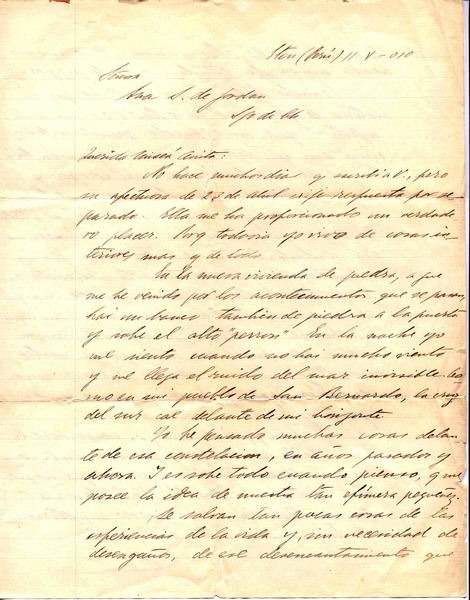 Eten (Perú) 11 V-910
Señora
Ana S. de Jordan
Querida Anita:
No hace muchos dias y escribia V., pero
su afectuosa de 27 de Abril exije respuesta por se
parado. Ella me ha proporcionado un verdade
ro placer. Porq todavia yo vivo de cosas in
teriores mas y de todo
En la nueva vivienda de piedra, a que
me he venido por los acontecimientos que se pasan,
hai un banco tambien de piedra a la puerta
y sobre el alto "perron". En la noche yo
me siento cuando no hai mucho viento
y me llega el ruido del mar invisible. Co
mo en mi pueblo de San Bernardo, la cruz
del sur cae delante de mi horizonte.
Yo he pensado muchas cosas delan
te de esa constelacion, en años pasados y
ahora. I es sobre todo cuando pienso, que me
posee la idea de nuestra tan efimera pequeñez.
Se salvan tan pocas cosas de las
esperiencias de la vida y, sin necesidad de
desengaños, de ese desencantamiento que